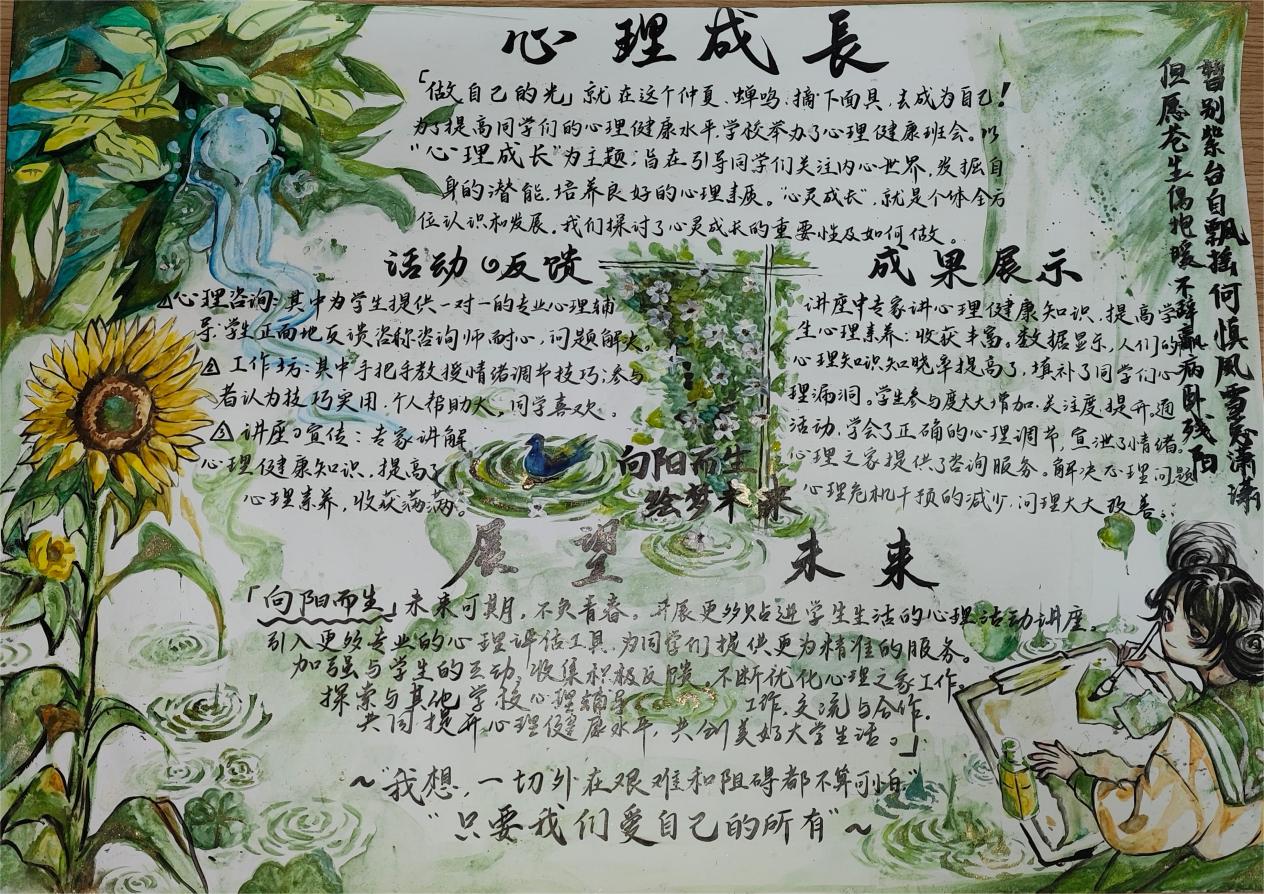 心理成長
「做自己的光」就在这个仲夏、蝉鸣、摘下面具,去成为自己!
为了提高同学们的心理健康水平,学校举办了心理健康班会。以
"心理成长"为主题,旨在引导同学们关注内心世界,发掘自
身的潜能,培养良好的心理素质。"心灵成长",就是个体全方
位认识和发展。我们探讨了心灵成长的重要性及如何做。
暂别紫台自飘摇何惧風雪总潇潇
但愿苍生俱抱暖不辞羸病卧残阳
活动の反馈
心理咨询:其中为学生提供一对一的专业心理辅
导:学生正面地反馈咨称咨询师耐心,问题解决。
工作坊:其中手把手教授情绪调节技巧;参与
者认为技巧实用,个人帮助大,同学喜欢。
讲座の宣传:专家讲解
心理健康知识,提高了
心理素养,收获满满。
向阳而生
绘梦未来
成果展示
讲座中专家讲心理健康知识,提高学
生心理素养:收获丰富。数据显示,人们的
心理知识知晓率提高了,填补了同学们心
理漏洞。学生参与度大大增加,关注度提升,通
活动,学会了正确的心理调节,宣泄了情绪。
心理之家提供了咨询服务。解决心理问题
心理危机干预的减少,问理大大改善。
展望未来
「向阳而生」未来可期,不负青春。开展更多贴进学生生活的心理活动讲座。
引入更多专业的心理评估工具,为同学们提供更为精准的服务。
加强与学生的互动,收集积极反馈,不断优化心理之家工作。
探索与其他学校心理辅导工作,交流与合作.
共同提升心理健康水平,共创美好大学生活。」
~"我想,一切外在艰难和阻碍都不算可怕"
"只要我们爱自己的所有"~